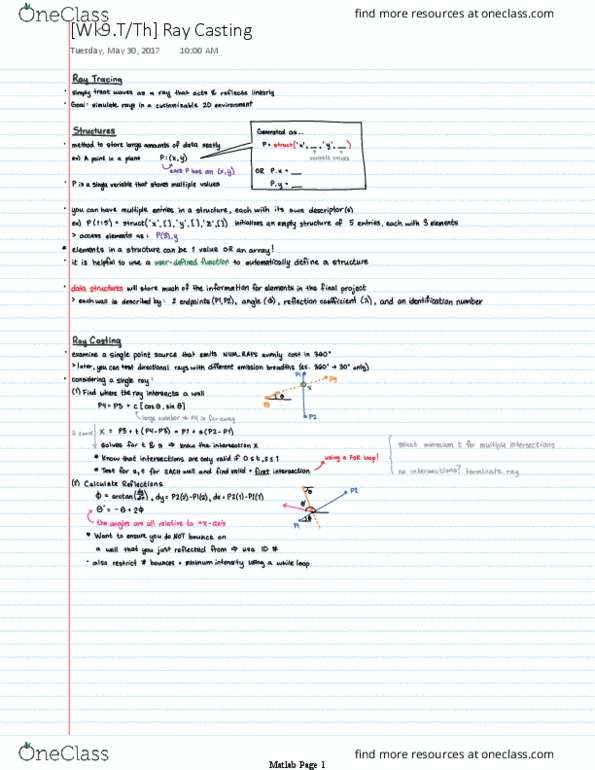 OneClass
find more resources at oneclass.com
[Wk9.T/Th] Ray Casting
Tuesday, May 30, 2017 10:00 AM
Ray Tracing
• simply treat waves as a ray that acts & reflects linearly
• Goal: simulate rays in a customizable 2D environment
Structures
• method to store large amounts of data neatly
ex) A point in a plane P:(x,y)
each P has an (x,y)
• P is a single variable that stores multiple values
Generated as...
P = struct('x',__,'y',__)
variable values
OR P.x = __
P.y = __
• you can have multiple entries in a structure, each with its own descriptor(s)
ex) P(1:5) = struct('x',[],'y',[],'z',[]) initializes an empty structure of 5 entries, each with 3 elements
> access elements as: P(3).y
* elements in a structure can be 1 value OR an array!
• it is helpful to use a user-defined function to automatically define a structure
• data structures will store much of the information for elements in the final project
> each wall is described by: 2 endpoints (P1,P2), angle (Φ), reflection coefficient (λ), and an identification number
Ray Casting
• examine a single point source that emits NUM_RAYS evenly cast in 360°
> later, you can test directional rays with different emission breadths (ex. 360° → 30° only)
• considering a single ray:
(1) Find where the ray intersects a wall
P4 = P3 + c [cos θ, sin θ]
large number → P4 is far away
X = P3 + t(P4-P3) = P1 + s(P2-P1)
solves for t & s ⇒ know the intersection X
* Know that intersections are only valid if 0 ≤ t,s ≤ 1
* Test for s,t for EACH wall and find valid + first intersection
using a FOR loop!
select minimum t for multiple intersections
no intersections? terminate ray
P1
P4
X
P3
θ
P2
(2) Calculate Reflections
Φ = arctan(dy/dx), dy = P2(2)-P1(2), dx = P2(1)-P1(1)
θ' = -θ + 2Φ
the angles are all relative to +x-axis
* Want to ensure you do NOT bounce on
a wall that you just reflected from ⇒ use ID #
• also restrict # bounces + minimum intensity using a while loop
θ
P2
θ'
P1
Φ
OneClass
find more resources at oneclass.com
Matlab Page 1